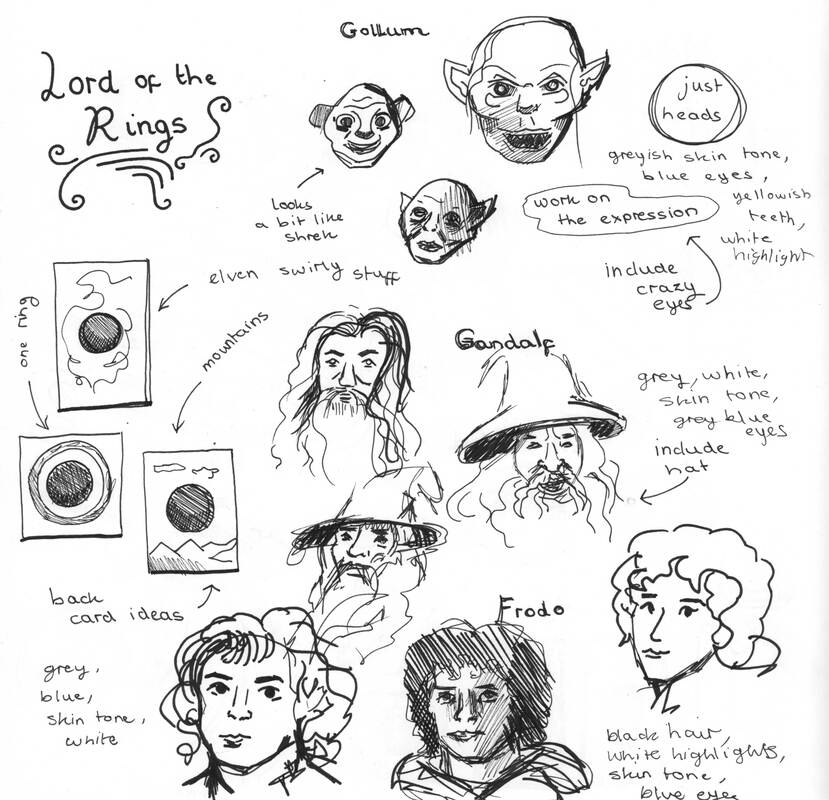 Lord of the
Rings
Gollum
just
heads
greyish skin tone,
blue eyes,
yellowish
teeth,
white
highlight
looks
a bit like
shrek
work on
the expression
include
crazy
eyes
elven swirly stuff
one ring
mountains
back
card ideas
Gandalf
grey, white,
skin tone,
grey blue
eyes
include
hat
Frodo
grey,
blue,
skin tone,
white
black hair,
white highlights,
skin tone,
blue eyes